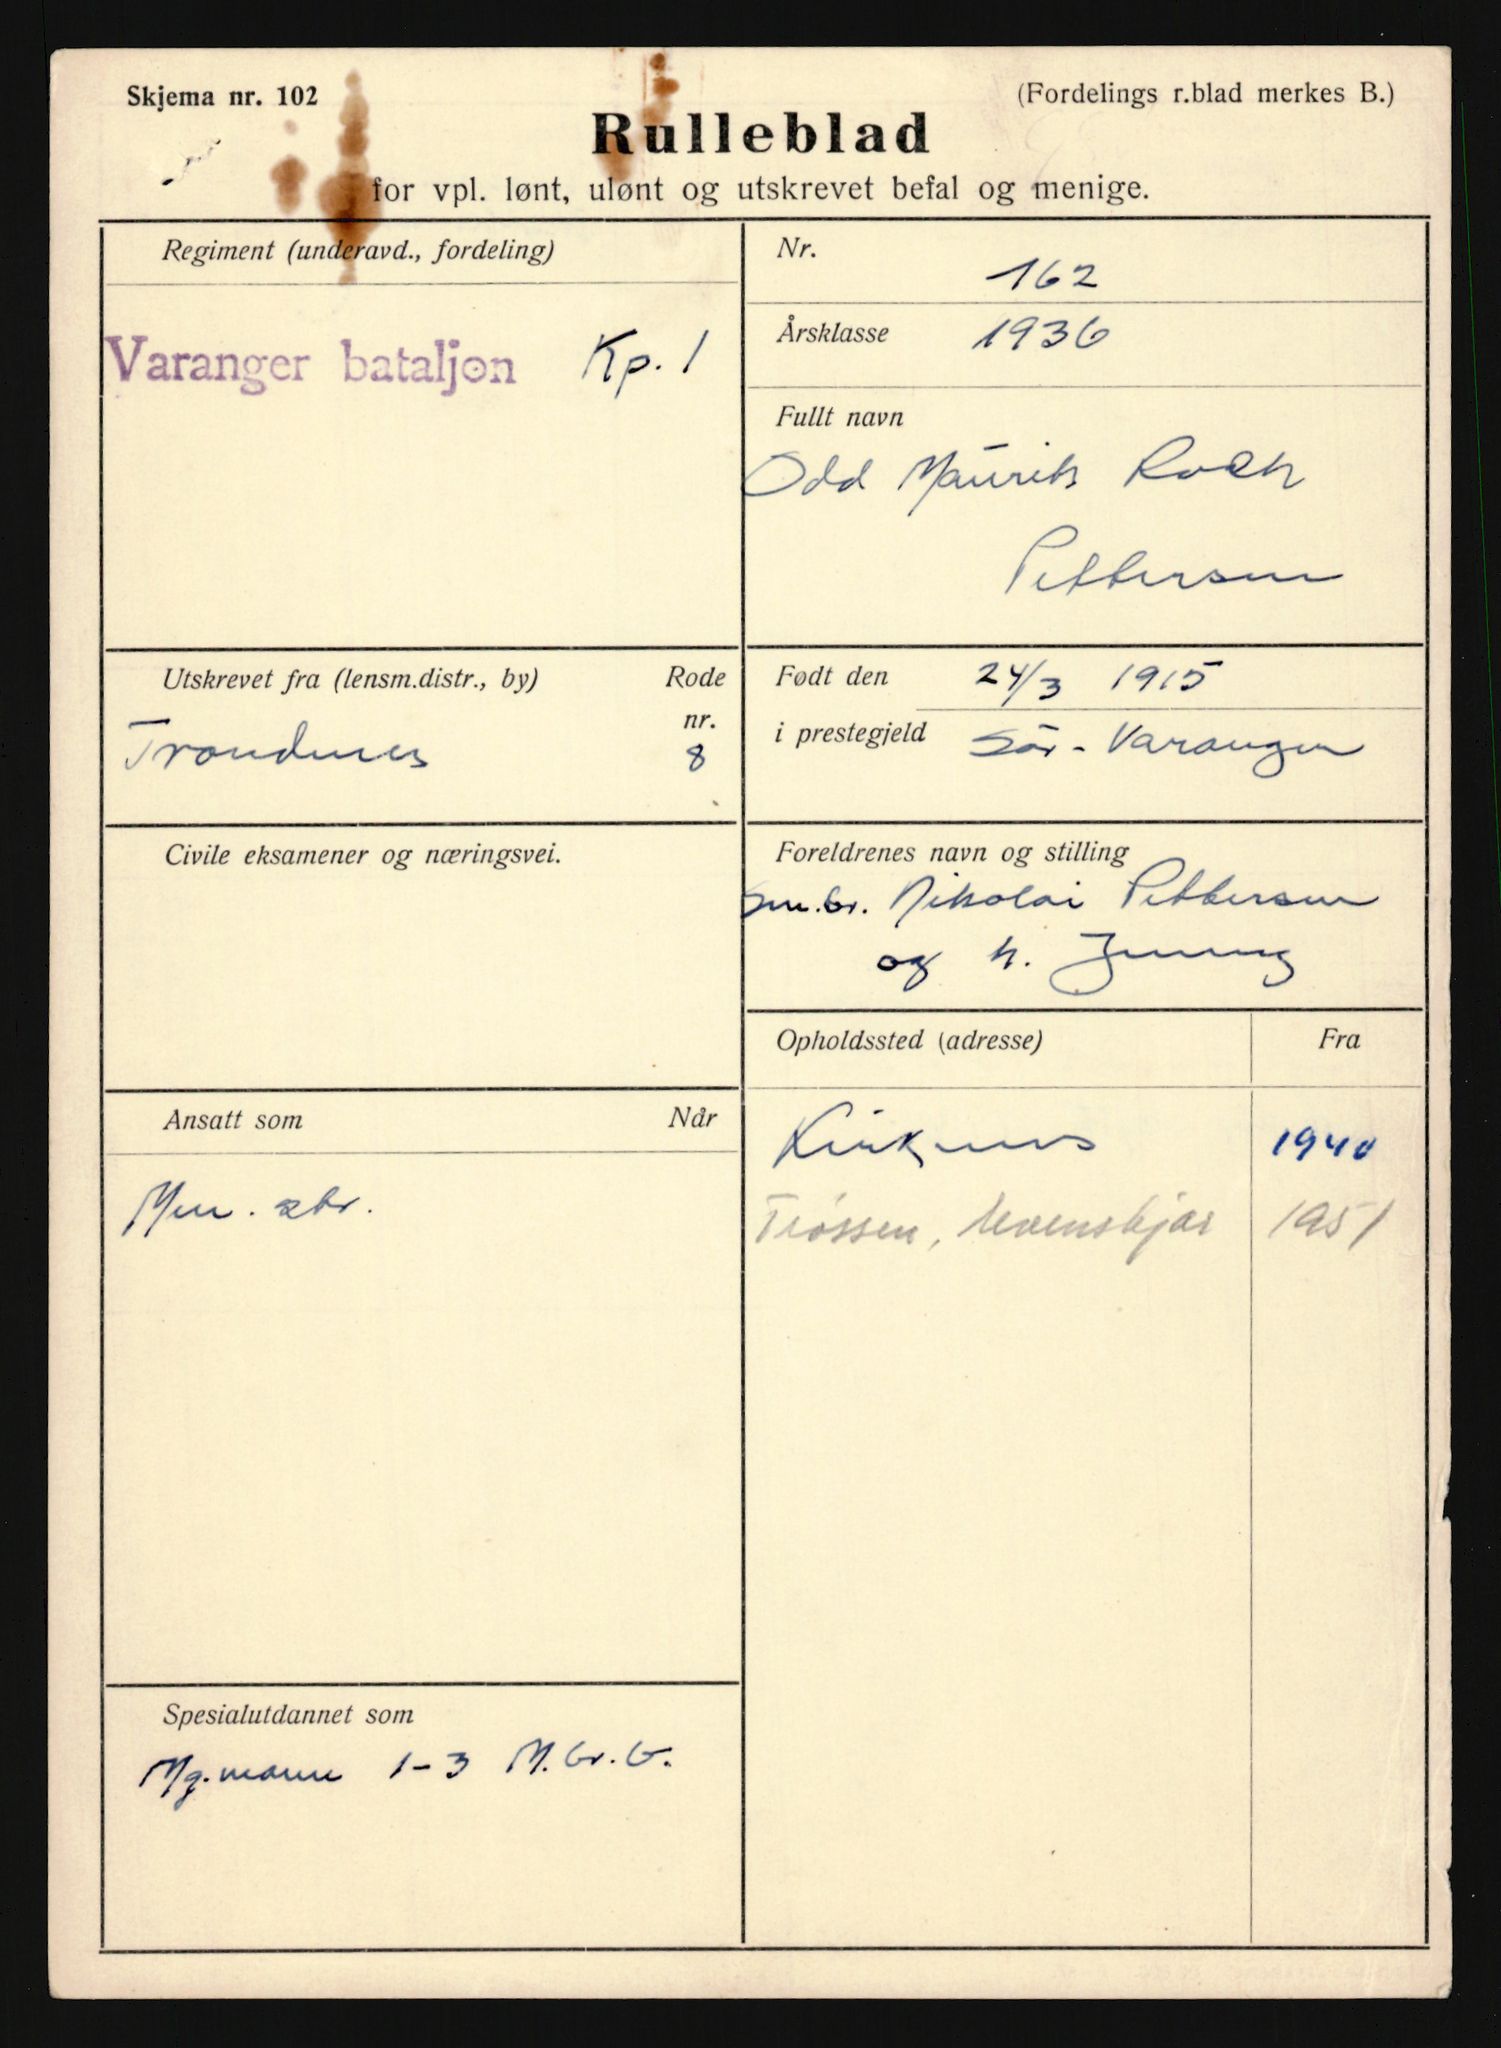 Skjema nr. 102
(Fordelings r.blad merkes B.)
Rulleblad
for vpl. lønt, ulønt og utskrevet befal og menige.
Regiment (underavd., fordeling)
Varanger bataljon Kp. 1
Nr.
162
Årsklasse 1936
Fullt navn
Odd Maurits
Pettersen
Utskrevet fra (lensm.distr., by) Rode nr.
Trondenes 8
Født den 24/3 1915
i prestegjeld Sør-Varanger
Civile eksamener og næringsvei.
Foreldrenes navn og stilling
Nikolai Pettersen
og h. Jenny
Opholdssted (adresse) Fra
Kirkenes 1940
1951
Ansatt som Når
Men. sbr.
Spesialutdannet som
Mg.mann 1-3 M.Gr.G.